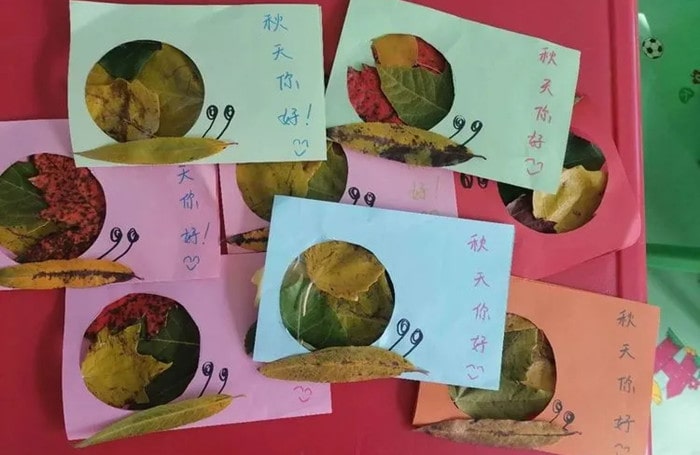 秋天你好！
秋天你好
天你好！
好
秋天你好
秋天你好